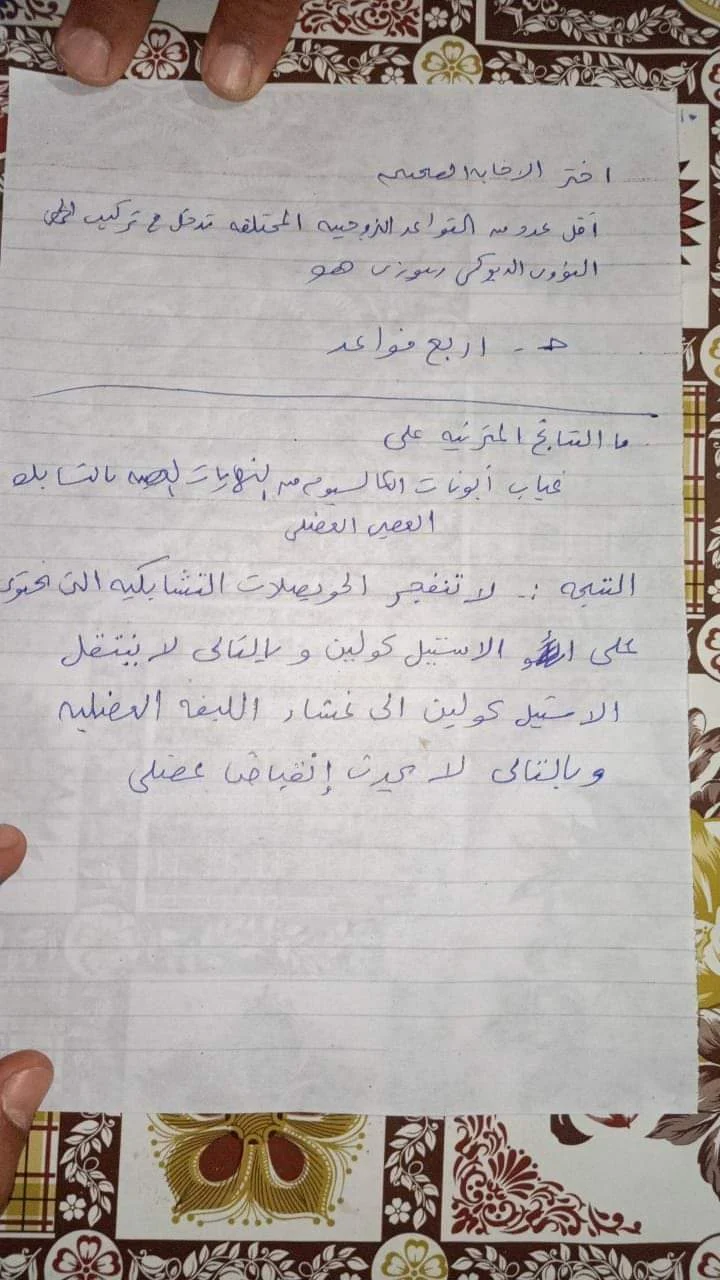 اختر الاجابه الصحيحه
أقل عدد من القواعد النزوجينيه المختلفه تدخل فى تركيب الحمض
النووى الديوكسى ريبوزى هو
ـ اربع قواعد
ما النتائج المترتبه على
غياب أيونات الكالسيوم من النهايات العصبيه بالتشابك
العصبى العضلى
النتيجه :ـ لا تنفجر الحويصلات التشابكيه التى تحتوى
على الاستيل كولين و بالتالى لا ينتقل
الاستيل كولين الى غشاء الليفه العضليه
وبالتالى لا يحدث إنقباض عضلى